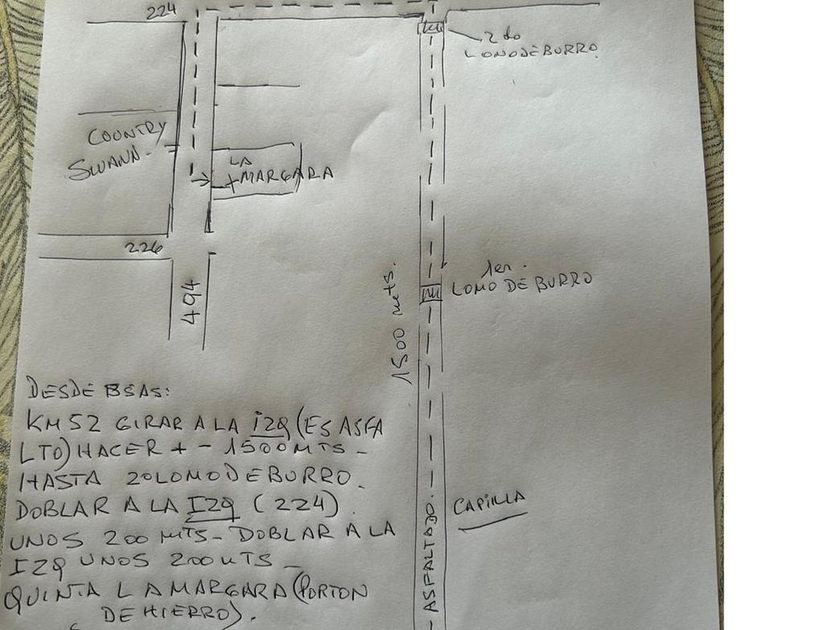 224
2do
LOMO DE BURRO
COONTRY
SWANN.
LA
MARGARA
226
494
1er.
LOMO DE BURRO
1500 mts.
CAPILLA
ASFALTADO.
DESDE BSAS:
KM 52 GIRAR A LA IZQ (ES ASFA
LTO) HACER + - 1500 MTS -
HASTA 2O LOMO DE BURRO.
DOBLAR A LA IZQ (224).
UNOS 200 MTS - DOBLAR A LA
IZQ UNOS 200 MTS -
QUINTA LA MARGARA (PORTON
DE HIERRO).